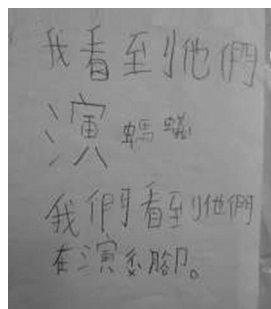 我看到他們
演螞蟻
我們看到他們
在演 腳。